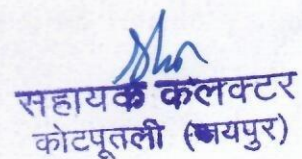 सहायक कलक्टर
कोटपूतली (जयपुर)